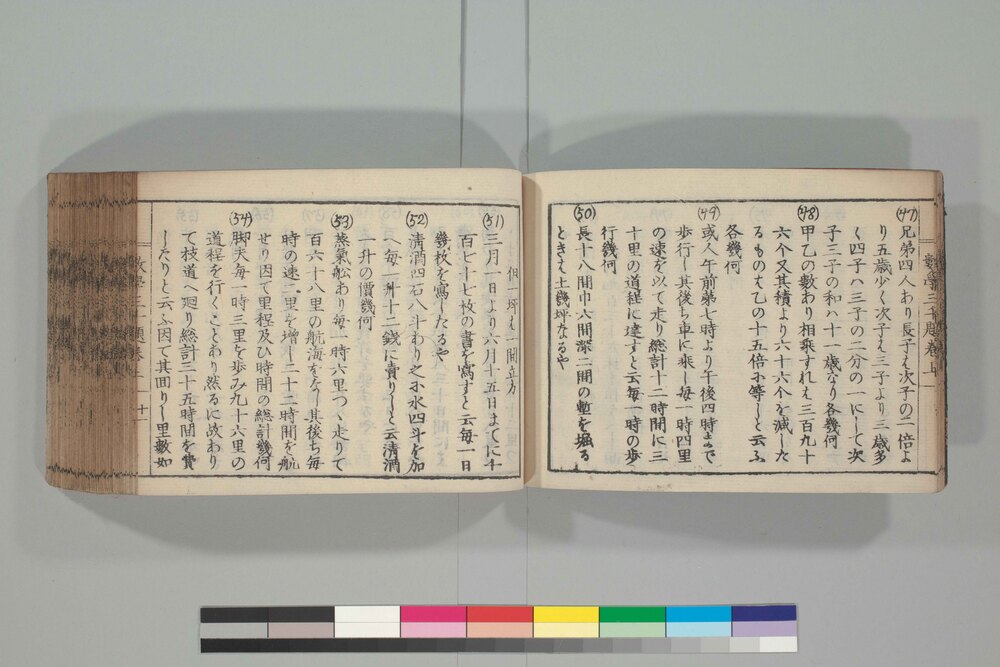 (47)
兄弟四人あり長子ハ次子の二倍よ
り五歳少く次子ハ三子より三歳多
く四子ハ三子の二分の一にして次
子三子の和ハ十一歳なり各幾何
(48)
甲乙の数あり相乗すれハ三百九十
六个又其積より六十六个を減した
るものハ乙の十五倍に等しと云ふ
各幾何
(49)
或人午前第七時より午後四時まで
歩行し其後ち車に乗し毎一時四里
の速を以て走り総計十二時間に三
十里の道程に達すと云毎一時の歩
行幾何
(50)
長十八間巾六間深二間の塹を堀る
ときハ土幾坪なるや
但一坪ハ一間立方
(51)
三月一日より六月十五日まてに十
百七十七枚の書を寫すと云毎一日
幾枚を寫したるや
(52)
清酒四石八斗わり之に水四斗を加
へ毎一升十二銭に賣りしと云清酒
一升の價幾何
(53)
蒸氣舩あり毎一時六里つゝ走りて
百六十八里の航海をなし其後ち毎
時の速二里を増し二十二時間を航
せり因て里程及ひ時間の総計幾何
(54)
脚夫毎一時三里を歩み九十六里の
道程を行くことあり然るに故あり
て枝道へ廻り総計三十五時間を費
したりと云ふ因て其囬りし里數如